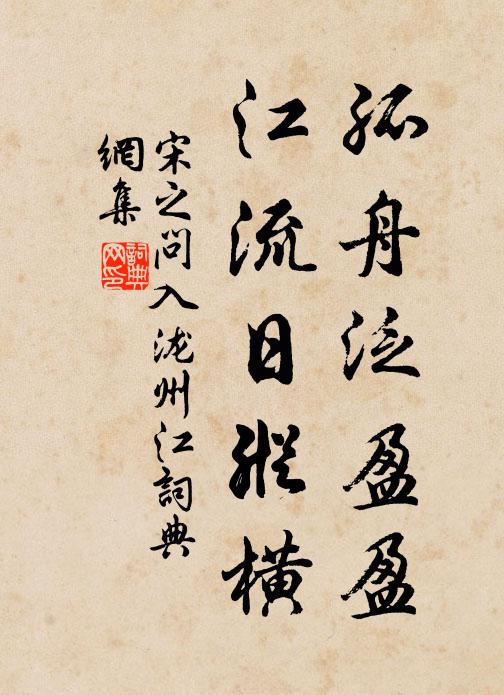 孤舟泛盈盈
江流日縱橫
宋之问入泷州江詞典
網集
詞典
网印